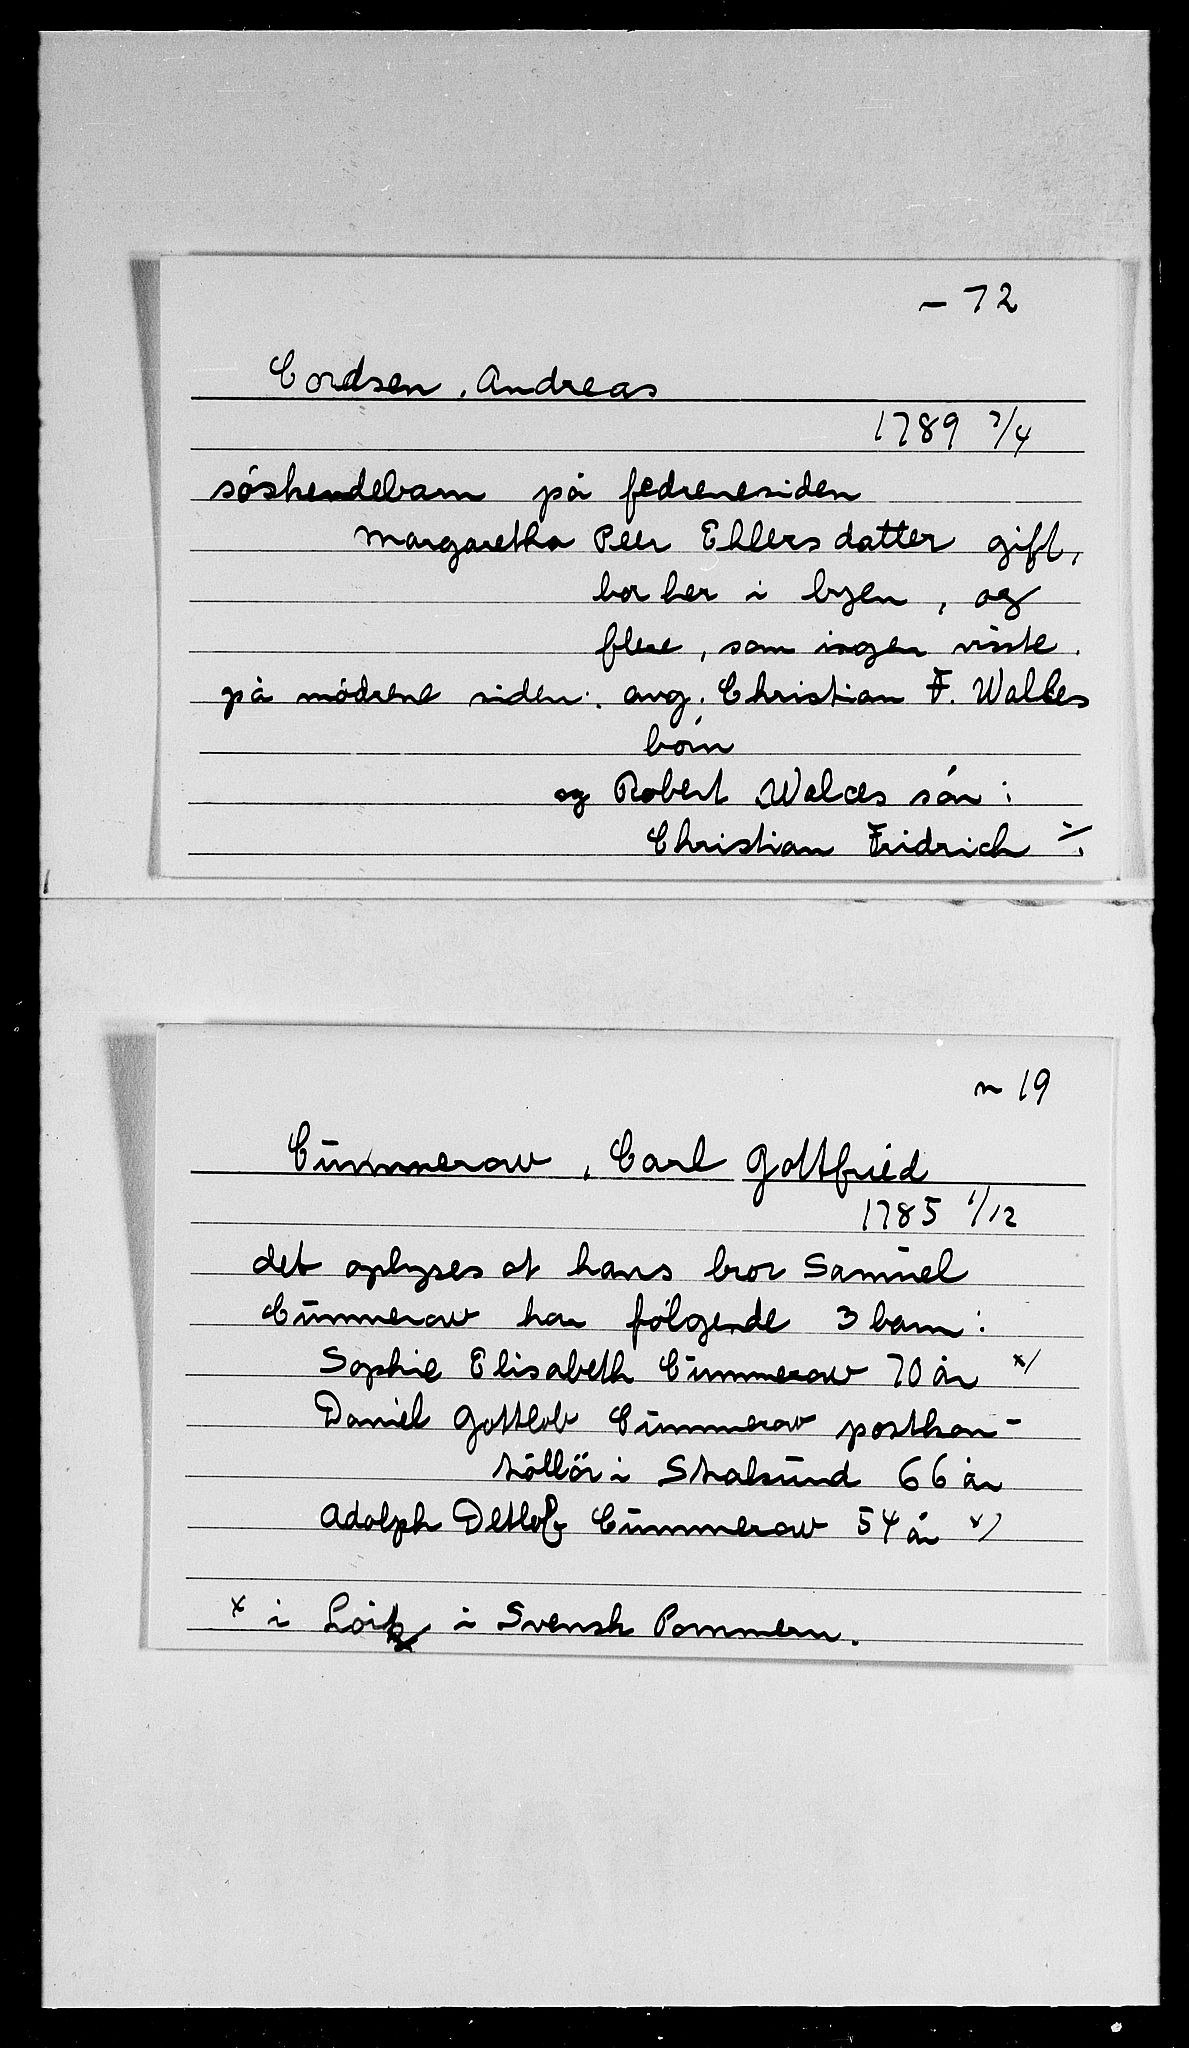 ~ 72
Cordsen, Andreas
1789 7/4
söskendebarn på fedrenesiden
Margaretha Peer Ehlersdatter gift,
bor her i byen, og
flere, som ingen visste.
på mödrene siden: avg. Christian F. Walles
börn
og Robert Walces sön:
Christian Fridrich ./.
~ 19
Cümmerow, Carl Gottfried
1785 1/12
det oplyses at hans bror Samuel
Cümmerow har følgende 3 barn:
Sophie Elisabeth Cümmerow 70 år x/
Daniel Gottlob Cümmerow postkon-
trollör i Stralsund 66 år
Adolph Detlof Cümmerow 54 år x)
x i Loitz i Svensk Pommern.